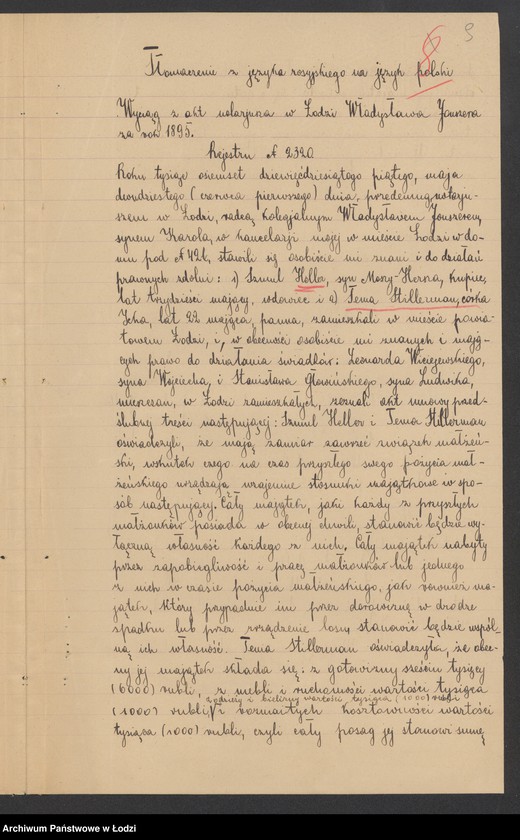 9
8
Tłomaczenie z języka rosyjskiego na język polski
Wyciąg z akt notarjusza w Łodzi Władysława Jonszera
za rok 1895.
Rejestru N 2320
Roku tysiąc osiemset dziewięćdziesiątego piątego, maja
dwudziestego (czerwca pierwszego) dnia, przedemną notarju-
szem w Łodzi, radcą kolegjalnym Władysławem Jonszerem,
synem Karola, w kancelarji mojej w mieście Łodzi w do-
mu pod N 426, stawili się osobiście mi znani i do działań
prawnych zdolni: 1) Szmul Heller, syn Moszy-Herza, kupiec,
lat trzydzieści mający, wdowiec i 2) Tema Stillerman, córka
Icka, lat 22 mająca, panna, zamieszkali w mieście powia-
towem Łodzi, i, w obecności osobiście mi znanych i mają-
cych prawo do działania świadków: Leonarda
syna Wojciecha, i Stanisława Głowińskiego, syna Ludwika,
mieszczan, w Łodzi zamieszkałych, zeznali akt umowy przed-
ślubnej treści następującej: Szmul Heller i Tema Stillerman
oświadczyli, że mają zamiar zawrzeć związek małżeń-
ski, wskutek czego na czas przyszłego swego pożycia mał-
żeńskiego urządzają wzajemne stosunki majątkowe w spo-
sób następujący. Cały majątek, jaki każdy z przyszłych
małżonków posiada w obecnej chwili, stanowić będzie wy-
łączną własność każdego z nich. Cały majątek nabyty
przez zapobiegliwość i pracę małżonków lub jednego
z nich w czasie pożycia małżeńskiego, jak również ma-
jątek, który przypadnie im przez darowiznę w drodze
spadku lub przez zrządzenie losu stanowić będzie wspól-
ną ich własność. Tema Stillerman oświadczyła, że obec-
ny jej majątek składa się: z gotowizny sześciu tysięcy
(6000) rubli, z mebli i ruchomości wartości tysiąca
z odzieży i bielizny wartości tysiąca (1000) rubli
(1000) rubli, i z rozmaitych kosztowności wartości
tysiąca (1000) rubli, czyli cały posag jej stanowi sumę
Archiwum Państwowe w Łodzi